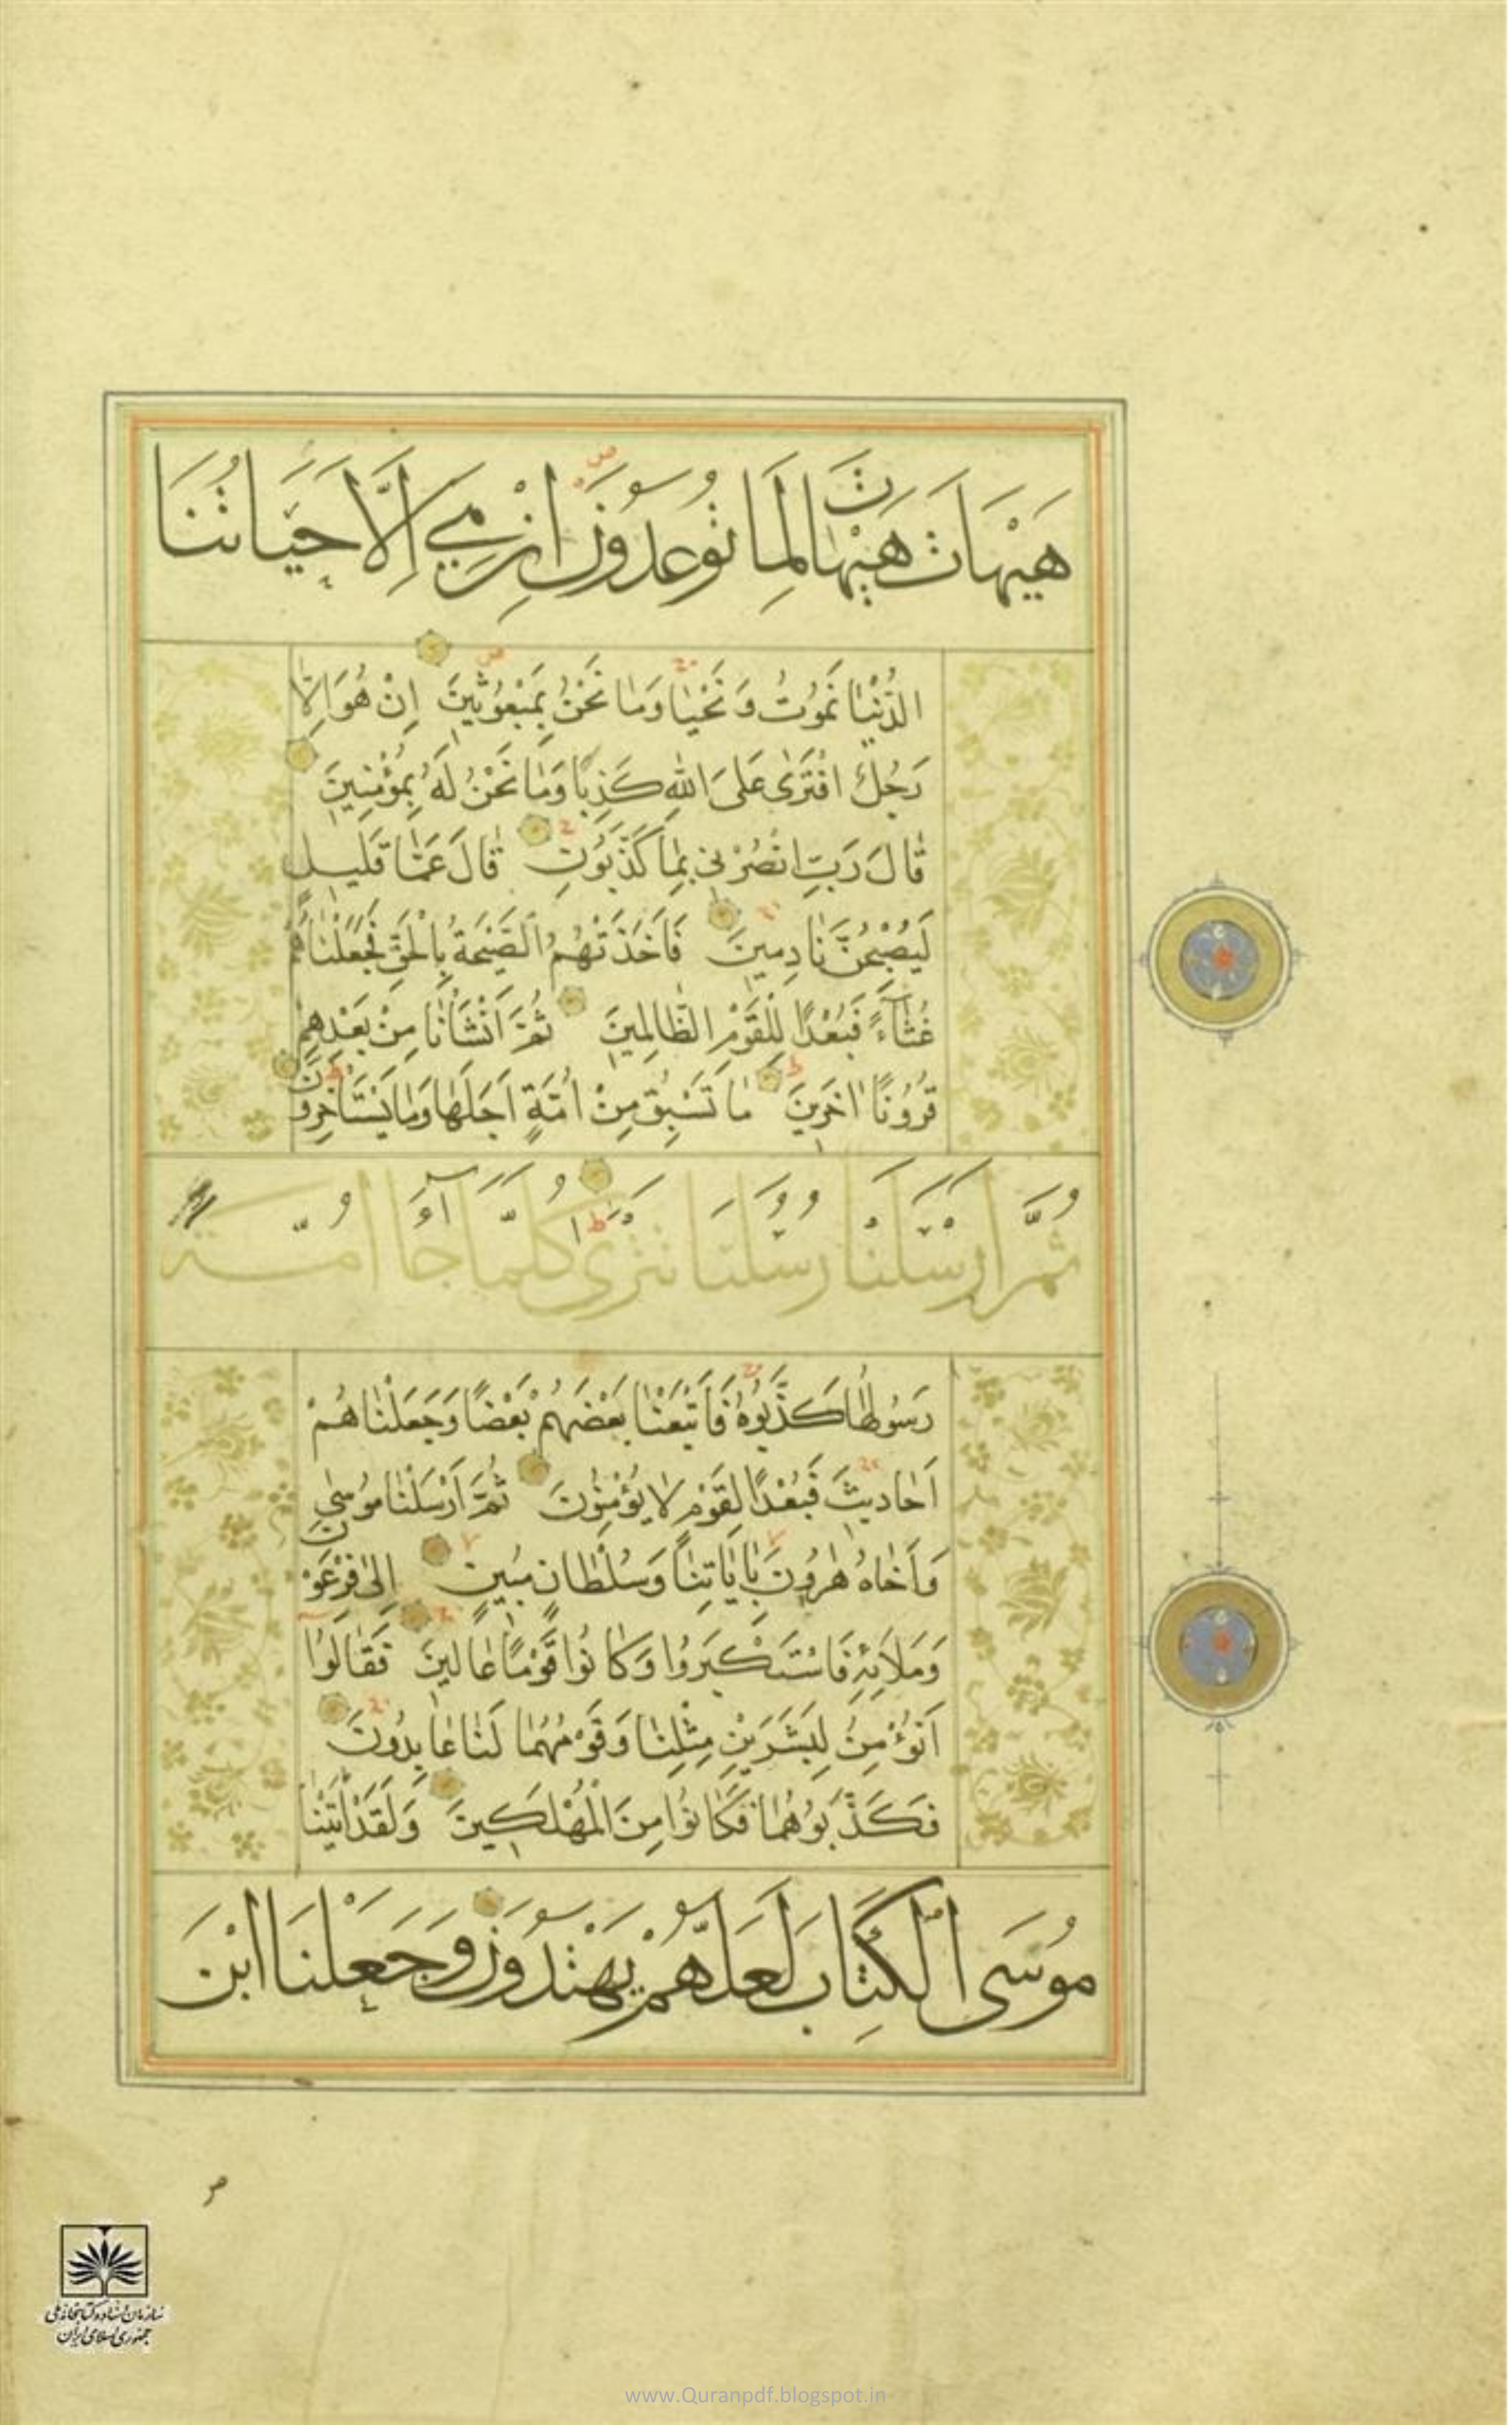 هَيْهَاتَ هَيْهَاتَ لِمَا تُوعَدُونَ اِنْ هِيَ اِلَّا حَيَاتُنَا
الدُّنْيَا نَمُوتُ وَنَحْيَا وَمَا نَحْنُ بِمَبْعُوثِينَ اِنْ هُوَ اِلَّا
رَجُلٌ افْتَرٰى عَلَى اللهِ كَذِبًا وَمَا نَحْنُ لَهُ بِمُؤْمِنِينَ
قَالَ رَبِّ انْصُرْنِي بِمَا كَذَّبُونِ قَالَ عَمَّا قَلِيلٍ
لَيُصْبِحُنَّ نَادِمِينَ فَاَخَذَتْهُمُ الصَّيْحَةُ بِالْحَقِّ فَجَعَلْنَاهُمْ
غُثَآءً فَبُعْدًا لِلْقَوْمِ الظَّالِمِينَ ثُمَّ اَنْشَأْنَا مِنْ بَعْدِهِمْ
قُرُونًا اٰخَرِينَ مَا تَسْبِقُ مِنْ اُمَّةٍ اَجَلَهَا وَمَا يَسْتَأْخِرُونَ
ثُمَّ اَرْسَلْنَا رُسُلَنَا تَتْرٰى كُلَّمَا جَآءَ اُمَّةً
رَسُولُهَا كَذَّبُوهُ فَاَتْبَعْنَا بَعْضَهُمْ بَعْضًا وَجَعَلْنَاهُمْ
اَحَادِيثَ فَبُعْدًا لِقَوْمٍ لَا يُؤْمِنُونَ ثُمَّ اَرْسَلْنَا مُوسٰى
وَاَخَاهُ هٰرُونَ بِاٰيَاتِنَا وَسُلْطَانٍ مُبِينٍ اِلٰى فِرْعَوْنَ
وَمَلَائِهِ فَاسْتَكْبَرُوا وَكَانُوا قَوْمًا عَالِينَ فَقَالُوا
اَنُؤْمِنُ لِبَشَرَيْنِ مِثْلِنَا وَقَوْمُهُمَا لَنَا عَابِدُونَ
فَكَذَّبُوهُمَا فَكَانُوا مِنَ الْمُهْلَكِينَ وَلَقَدْ اٰتَيْنَا
مُوسَى الْكِتَابَ لَعَلَّهُمْ يَهْتَدُونَ وَجَعَلْنَا ابْنَ
سازمان اسناد و کتابخانه ملی
جمهوری اسلامی ایران
www.Quranpdf.blogspot.in